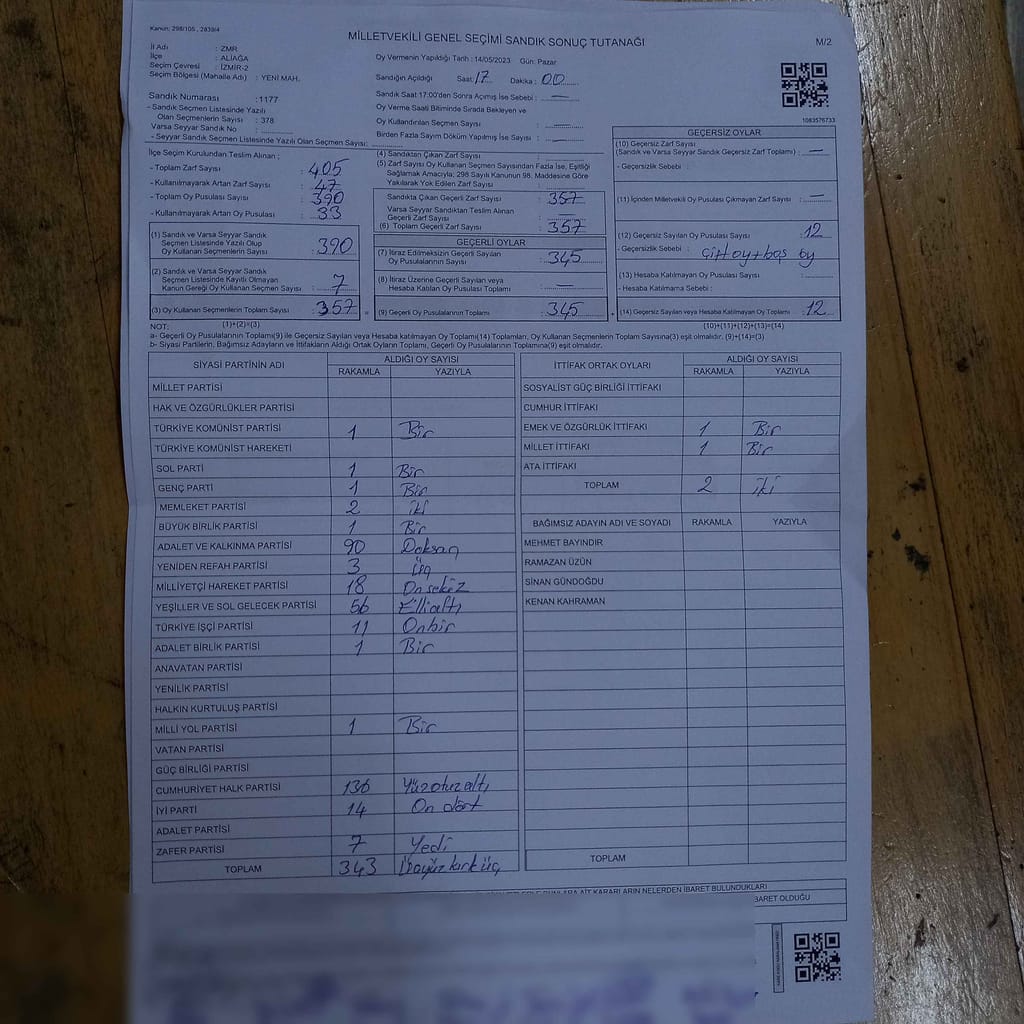 Kanun: 298/105 , 2839/4
MİLLETVEKİLİ GENEL SEÇİMİ SANDIK SONUÇ TUTANAĞI
M/2
İl Adı : ZMR
İlçe : ALİAĞA
Seçim Çevresi : İZMİR-2
Seçim Bölgesi (Mahalle Adı) : YENİ MAH.
Oy Vermenin Yapıldığı Tarih : 14/05/2023 Gün: Pazar
Sandığın Açıldığı Saat: 17 Dakika : 00
Sandık Saat 17:00'den Sonra Açımış İse Sebebi : —
Oy Verme Saati Bitiminde Sırada Bekleyen ve
Oy Kullandırılan Seçmen Sayısı : —
Birden Fazla Sayım Döküm Yapılmış İse Sayısı : —
1083576733
Sandık Numarası : 1177
- Sandık Seçmen Listesinde Yazılı
Olan Seçmenlerin Sayısı : 378
Varsa Seyyar Sandık No :
- Seyyar Sandık Seçmen Listesinde Yazılı Olan Seçmen Sayısı:
İlçe Seçim Kurulundan Teslim Alınan ;
- Toplam Zarf Sayısı : 405
- Kullanılmayarak Artan Zarf Sayısı : 47
- Toplam Oy Pusulası Sayısı : 390
- Kullanılmayarak Artan Oy Pusulası : 33
(1) Sandık ve Varsa Seyyar Sandık
Seçmen Listesinde Yazılı Olup
Oy Kullanan Seçmenlerin Sayısı : 390
(2) Sandık ve Varsa Seyyar Sandık
Seçmen Listesinde Kayıtlı Olmayan
Kanun Gereği Oy Kullanan Seçmen Sayısı : 7
(3) Oy Kullanan Seçmenlerin Toplam Sayısı : 357
(4) Sandıktan Çıkan Zarf Sayısı :
(5) Zarf Sayısı Oy Kullanan Seçmen Sayısından Fazla İse, Eşitliği
Sağlamak Amacıyla; 298 Sayılı Kanunun 98. Maddesine Göre
Yakılarak Yok Edilen Zarf Sayısı :
Sandıkta Çıkan Geçerli Zarf Sayısı : 357
Varsa Seyyar Sandıktan Teslim Alınan
Geçerli Zarf Sayısı :
(6) Toplam Geçerli Zarf Sayısı : 357
GEÇERLİ OYLAR
(7) İtiraz Edilmeksizin Geçerli Sayılan
Oy Pusulalarının Sayısı : 345
(8) İtiraz Üzerine Geçerli Sayılan veya
Hesaba Katılan Oy Pusulası Toplamı : —
= (9) Geçerli Oy Pusulalarının Toplamı : 345
GEÇERSİZ OYLAR
(10) Geçersiz Zarf Sayısı
(Sandık ve Varsa Seyyar Sandık Geçersiz Zarf Toplamı) : —
- Geçersizlik Sebebi :
(11) İçinden Milletvekili Oy Pusulası Çıkmayan Zarf Sayısı : —
(12) Geçersiz Sayılan Oy Pusulası Sayısı : 12
- Geçersizlik Sebebi : Çift oy + boş oy
(13) Hesaba Katılmayan Oy Pusulası Sayısı :
- Hesaba Katılmama Sebebi :
+ (14) Geçersiz Sayılan veya Hesaba Katılmayan Oy Toplamı : 12
NOT: (1)+(2)=(3) (10)+(11)+(12)+(13)=(14)
a- Geçerli Oy Pusulalarının Toplamı(9) ile Geçersiz Sayılan veya Hesaba katılmayan Oy Toplamı(14) Toplamları, Oy Kullanan Seçmenlerin Toplam Sayısına(3) eşit olmalıdır. (9)+(14)=(3)
b- Siyasi Partilerin, Bağımsız Adayların ve İttifakların Aldığı Ortak Oyların Toplamı, Geçerli Oy Pusulalarının Toplamına(9) eşit olmalıdır.
SİYASİ PARTİNİN ADI ALDIĞI OY SAYISI
RAKAMLA YAZIYLA
MİLLET PARTİSİ
HAK VE ÖZGÜRLÜKLER PARTİSİ
TÜRKİYE KOMÜNİST PARTİSİ 1 Bir
TÜRKİYE KOMÜNİST HAREKETİ
SOL PARTİ 1 Bir
GENÇ PARTİ 1 Bir
MEMLEKET PARTİSİ 2 iki
BÜYÜK BİRLİK PARTİSİ 1 Bir
ADALET VE KALKINMA PARTİSİ 90 Doksan
YENİDEN REFAH PARTİSİ 3 Üç
MİLLİYETÇİ HAREKET PARTİSİ 18 Onsekiz
YEŞİLLER VE SOL GELECEK PARTİSİ 56 Elliafltı
TÜRKİYE İŞÇİ PARTİSİ 11 Onbir
ADALET BİRLİK PARTİSİ 1 Bir
ANAVATAN PARTİSİ
YENİLİK PARTİSİ
HALKIN KURTULUŞ PARTİSİ
MİLLİ YOL PARTİSİ 1 Bir
VATAN PARTİSİ
GÜÇ BİRLİĞİ PARTİSİ
CUMHURİYET HALK PARTİSİ 136 Yüzotuzaltı
İYİ PARTİ 14 On dört
ADALET PARTİSİ
ZAFER PARTİSİ 7 Yedi
TOPLAM 343 Üçyüzkırküç
İTTİFAK ORTAK OYLARI ALDIĞI OY SAYISI
RAKAMLA YAZIYLA
SOSYALİST GÜÇ BİRLİĞİ İTTİFAKI
CUMHUR İTTİFAKI
EMEK VE ÖZGÜRLÜK İTTİFAKI 1 Bir
MİLLET İTTİFAKI 1 Bir
ATA İTTİFAKI
TOPLAM 2 iki
BAĞIMSIZ ADAYIN ADI VE SOYADI RAKAMLA YAZIYLA
MEHMET BAYINDIR
RAMAZAN ÜZÜN
SİNAN GÜNDOĞDU
KENAN KAHRAMAN
TOPLAM
KARARLARIN NELERDEN İBARET BULUNDUKLARI
BARET OLDUĞU